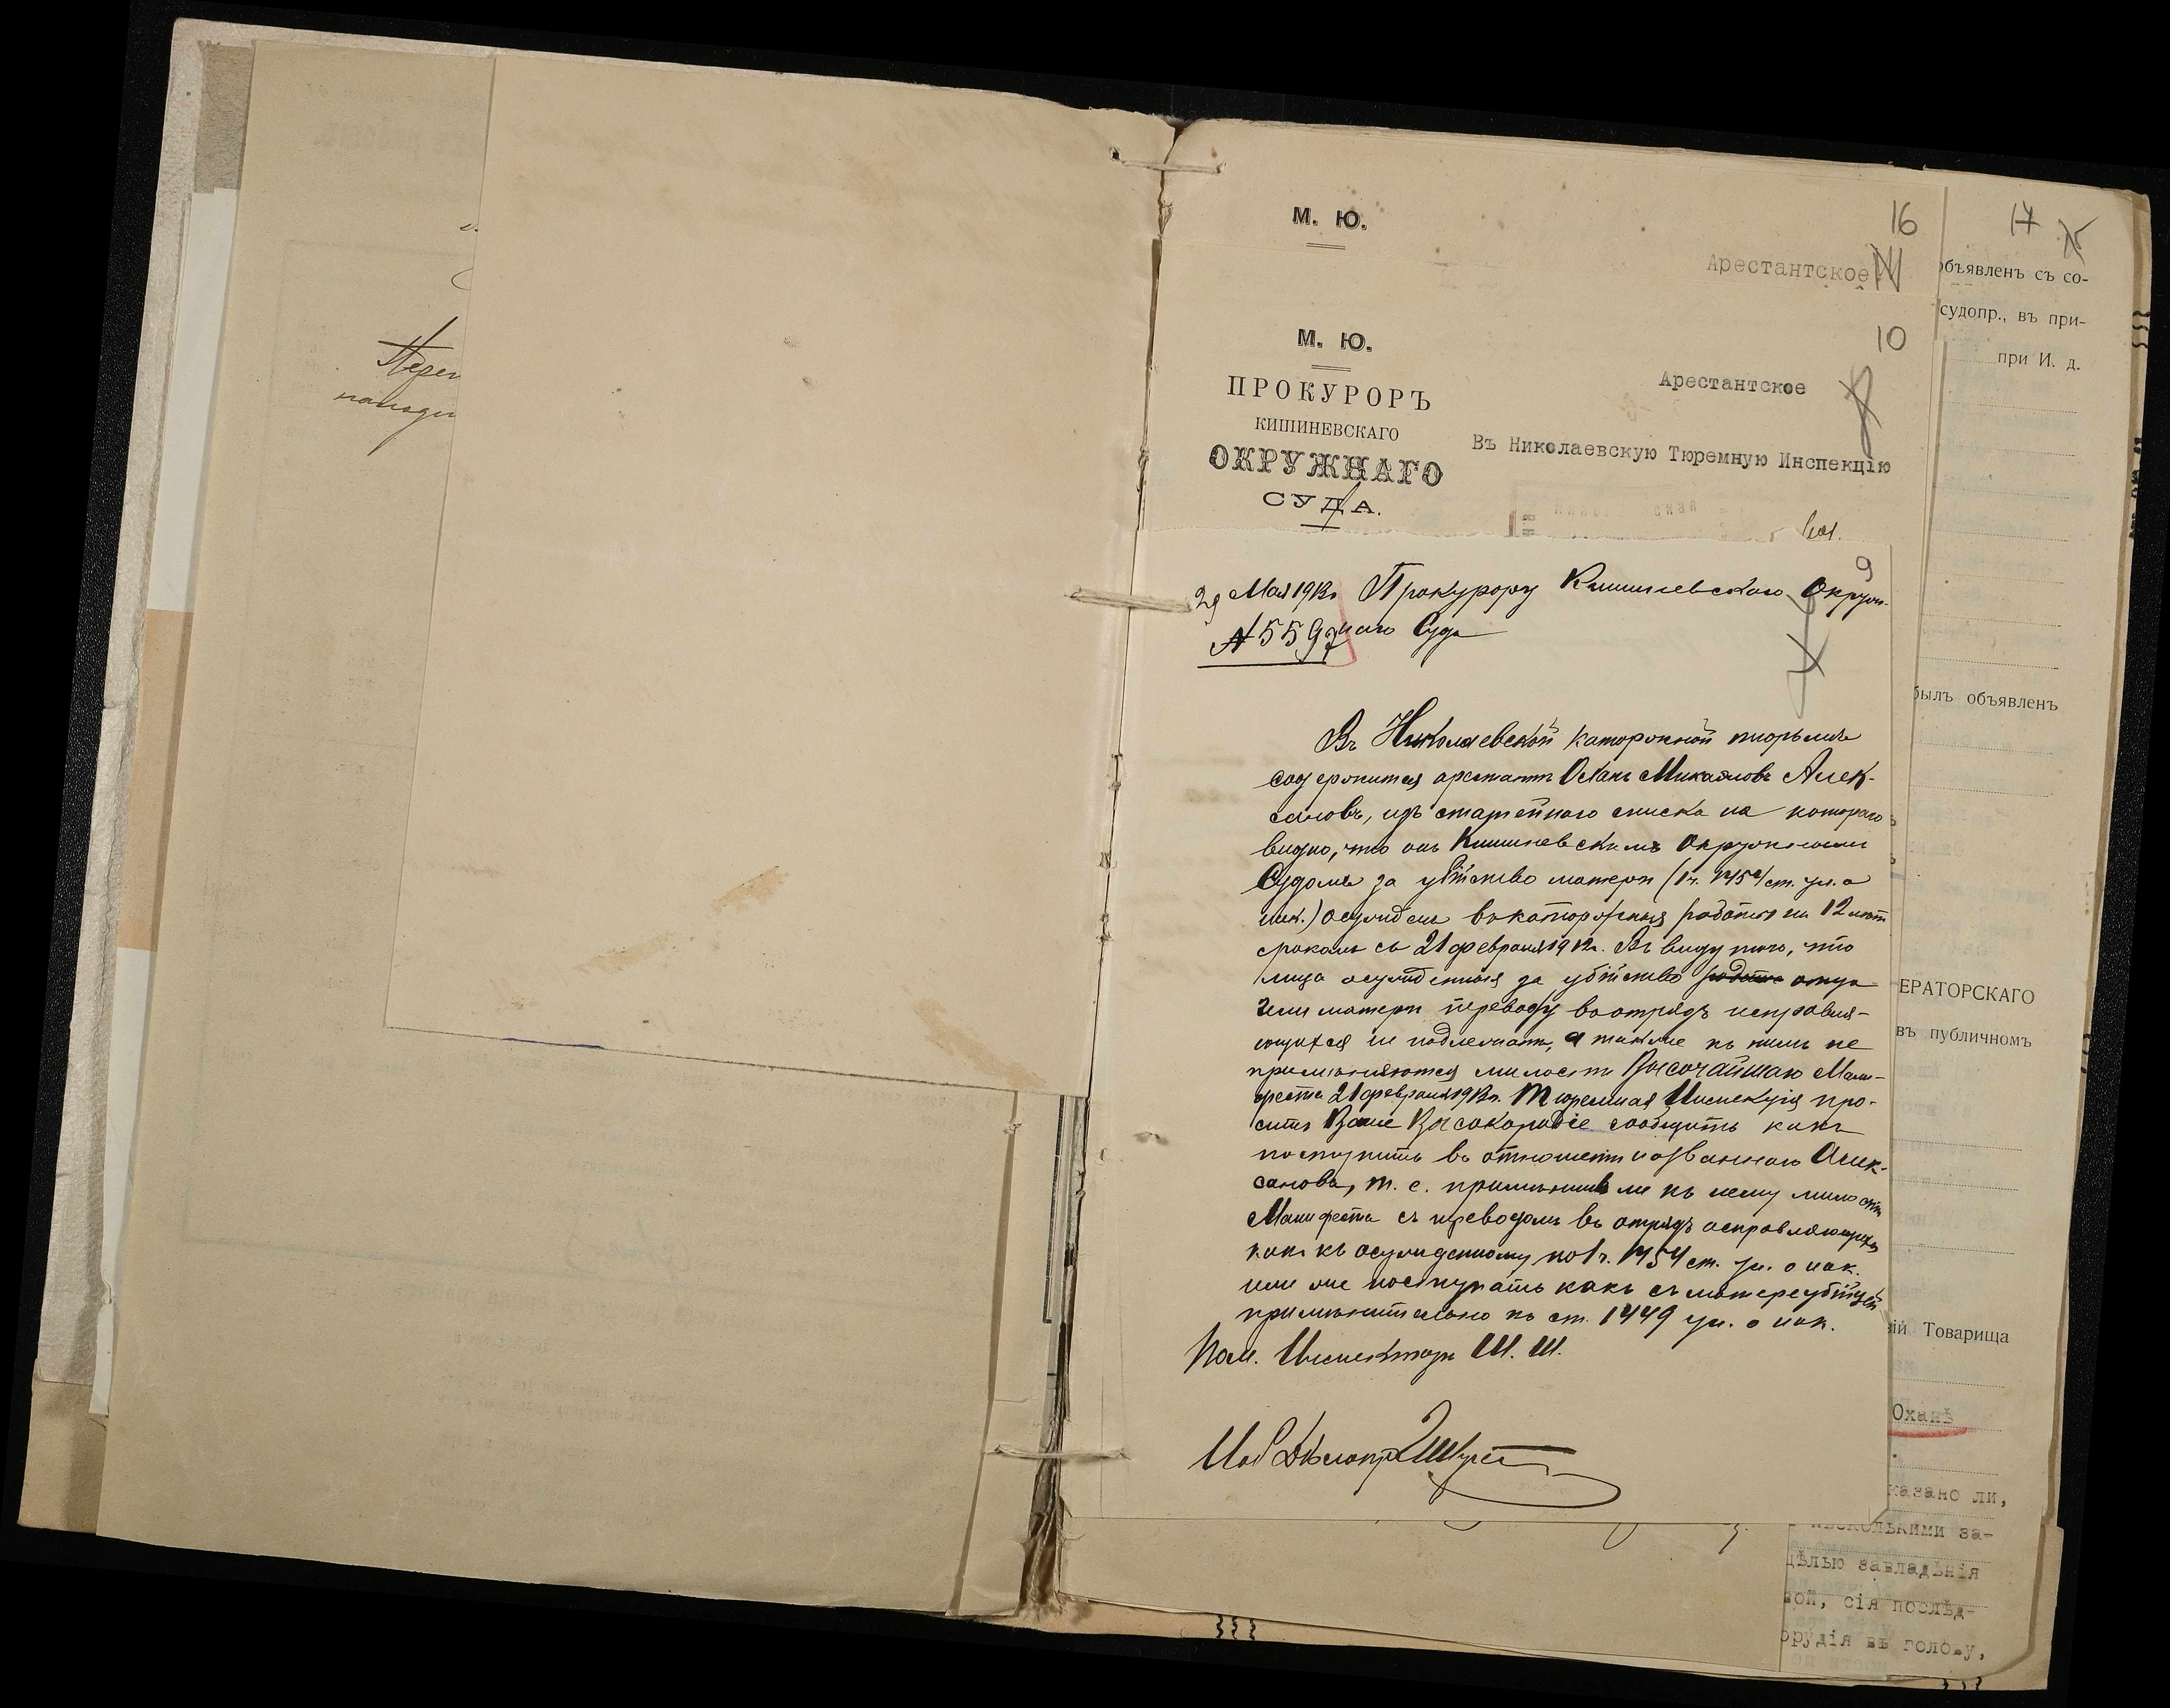 Перев
М. Ю.
16
Арестантское
М. Ю.
10
ПРОКУРОРЪ
КИШИНЕВСКАГО
ОКРУЖНАГО
СУДА.
Арестантское
Въ Николаевскую Тюремную Инспекцію
9
29 Мая 1913г. Прокурору Кишиневскаго Окруж-
№ 5597 наго Суда
Въ Николаевской каторжной тюрьмѣ
содержится арестантъ Оханъ Микаэловъ Алек-
сановъ, изъ статейнаго списка на котораго
видно, что онъ Кишиневскимъ Окружнымъ
Судомъ за убійство матери (1 ч. 1454 ст. ул. о
нак.) осужденъ въ каторжныя работы на 12 лѣтъ
срокомъ съ 21 февраля 1912г. Въ виду того, что
лица осужденныя за убійство отца
или матери переводу въ отрядъ исправля-
ющихся не подлежатъ, а также къ нимъ не
примѣняются милости Высочайшаго Мани-
феста 21 февраля 1913г. Тюремная Инспекція про-
ситъ Ваше Высокородіе сообщить какъ
поступить въ отношеніи названнаго Алек-
санова, т. е. примѣнить ли къ нему милости
Манифеста съ переводомъ въ отрядъ исправляющихся
какъ къ осужденному по 1 ч. 1454 ст. ул. о нак.
или же поступать какъ съ матереубійцей
примѣнительно къ ст. 1449 ул. о нак.
Пом. Инспектора Ш. Ш.
17
объявленъ съ со-
судопр., въ при-
при И. д.
былъ объявленъ
ЕРАТОРСКАГО
въ публичномъ
ій Товарища
Оханъ
казано ли,
нѣсколькими за-
цѣлью завладѣнія
ой, сія послѣд-
орудія въ голову,